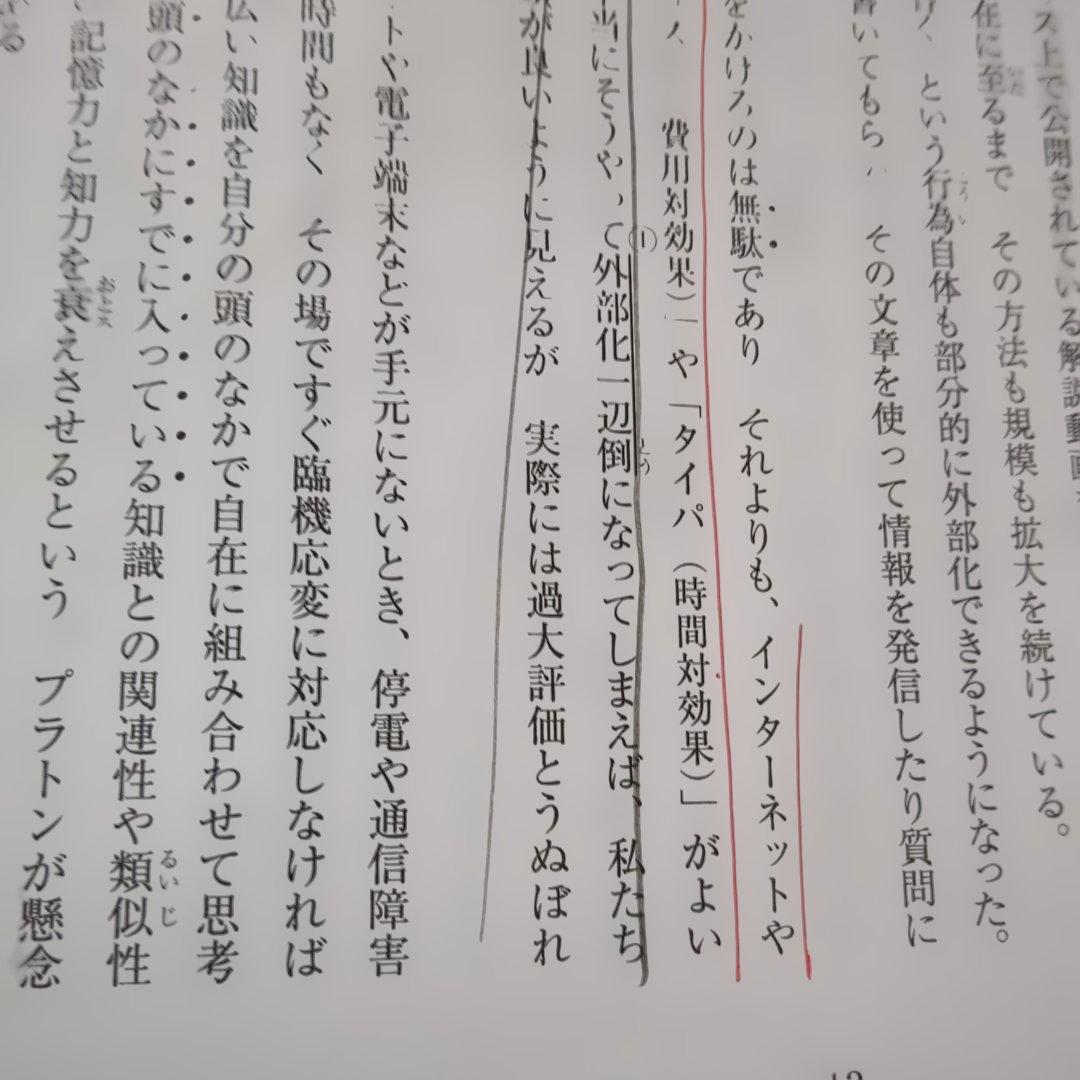 ス上で公開されている解説動画
在に至るまで その方法も規模も拡大を続けている。
という行為自体も部分的に外部化できるようになった。
書いてもら その文章を使って情報を発信したり質問に
をかけるのは無駄であり それよりも、インターネットや
費用対効果)」や「タイパ(時間対効果)」がよい
当にそうやって外部化一辺倒になってしまえば、私たち
が良いように見えるが 実際には過大評価とうぬぼれ
トや電子端末などが手元にないとき、停電や通信障害
時間もなく その場ですぐ臨機応変に対応しなければ
広い知識を自分の頭のなかで自在に組み合わせて思考
頭のなかにすでに入っている知識との関連性や類似性
記憶力と知力を衰えさせるという プラトンが懸念